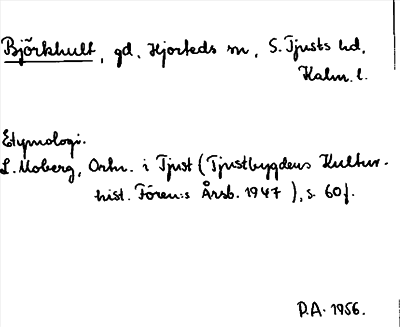 Björkhult, gd. Hjorteds sn, S. Tjusts hd,
Kalm. l.
Etymologi.
L. Moberg, Ortn. i Tjust (Tjustbygdens Kultur-
hist. Fören:s Årsb. 1947), s. 60f.
D.A. 1956.